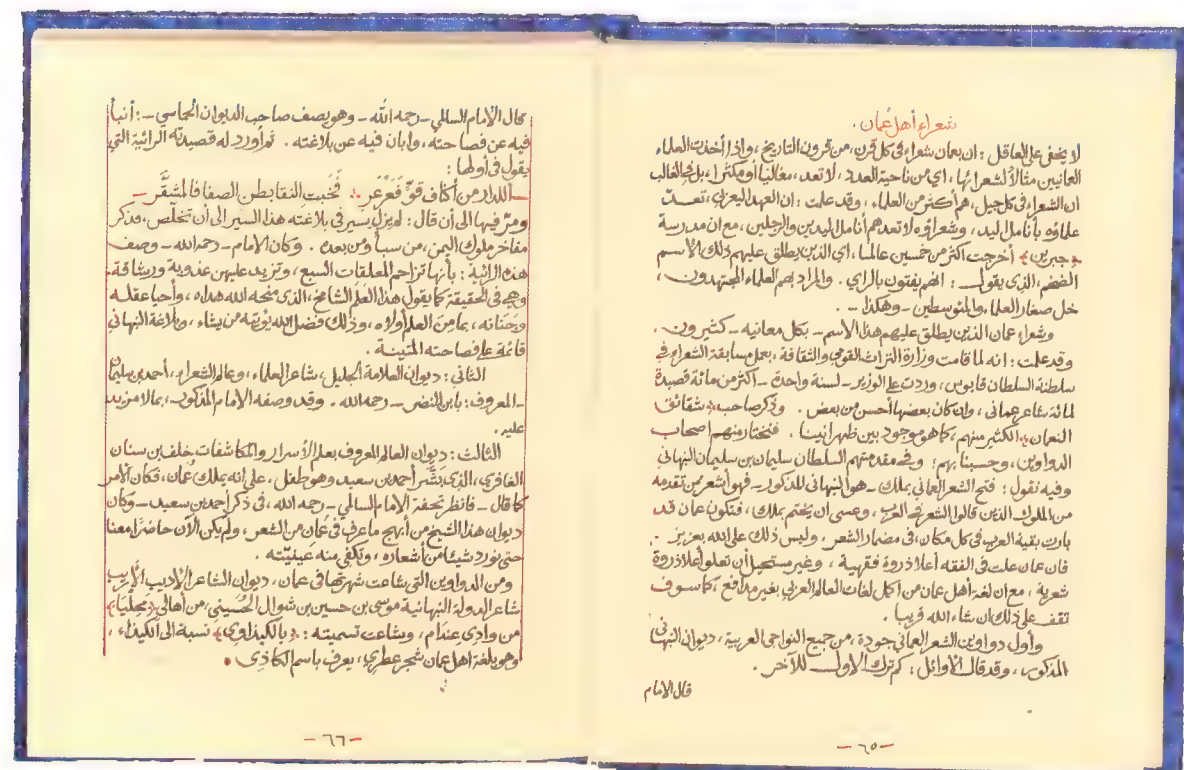 شعراء أهل عُمان .
لا يخفى على العاقل : ان بعمان شعراء في كل قرن، من قرون التاريخ ، واذا أخذت العلماء
العمانيين مثالًا لشعرائها ، اي من ناحية العدد ، لا تعد ، مغاليا أو مكثرا ، بل في الغالب
ان الشعراء في كل جيل ، هم أكثر من العلماء ، وقد علمت : ان العهد اليعربي ، تعد
علماؤه بأنامل اليد ، وشعراؤه لا تعدهم أنامل اليدين والرجلين ، مع ان مدرسة
«جبرين» أخرجت اكثر من خمسين عالما ، اي الذين يطلق عليهم ذلك الاسم
الضخم ، الذي يقول : انهم يفتون بالراي . والمراد بهم العلماء المجتهدون ،
خل صغار العلماء والمتوسطين - وهكذا - .
وشعراء عمان الذين يطلق عليهم هذا الأسم - بكل معانيه - كثيرون .
وقد علمت : انه لما قامت وزارة التراث القومي والثقافة ، بعمل مسابقة الشعراء في
سلطنة السلطان قابوس ، وردت على الوزير - لسنة واحدة - اكثر من مائة قصيدة
لمائة شاعر عماني ، وان كان بعضها أحسن من بعض . وذكر صاحب «شقائق
النعمان» الكثير منهم ، كما هو موجود بين ظهرانينا . فنختار منهم اصحاب
الدواوين ، وحسبنا بهم ؛ وفي مقدمتهم السلطان سليمان بن سليمان النبهاني
وفيه نقول : فتح الشعر العماني بملك - هو النبهاني المذكور - فهو أشعر من تقدمه
من الملوك الذين قالوا الشعر في العرب ، وعسى ان يختم بملك ، فتكون عمان قد
بارت بقية العرب في كل مكان ، في مضمار الشعر . وليس ذلك على الله بعزيز .
فان عمان علت في الفقه أعلا ذروة فقهية ، وغير مستحيل أن تعلو أعلا ذروة
شعرية ، مع ان لغة أهل عمان من اكمل لغات العالم العربي بغير مدافع ، كما سوف
تقف على ذلك ان شاء الله قريبا .
وأول دواوين الشعر العماني جودة ، من جميع النواحي العربية ، ديوان النبهاني
المذكور ، وقد قالت الأوائل : كم ترك الاول للآخر .
قال الامام
- ٦٥ -
قال الإمام السالمي - رحمه الله - وهو يصف صاحب الديوان الحماسي - : أنبأ
فيه عن فصاحته ، وابان فيه عن بلاغته . ثم أورد له قصيدته الرائية التي
يقول في أولها :
- أللدار من أكناف قوّ فَعَرْعَرِ .: فَخَبت النقا بطن الصفا فالمشقَّر -
ومرّ فيها الى أن قال : لم يزل يسير في بلاغته هذا السير الى أن تخلّص ، فذكر
مفاخر ملوك اليمن ، من سبأ ومن بعده . وكان الامام - رحمه الله - وصف
هذه الرائية : بأنها تزاحم المعلقات السبع ، وتزيد عليهن عذوبة ورشاقة .
وهي في الحقيقة كما يقول هذا العَلَم الشامخ ، الذي منحه الله هداه ، وأحيا عقله
وجَنانه ، بما مِنَ العلم أولاه ، وذلك فضل الله يؤتيه من يشاء ، وبلاغة النبهاني
قائمة على فصاحته المتينة .
الثاني : ديوان العلامة الجليل ، شاعر العلماء ، وعالم الشعراء ، أحمد بن سليمان
- المعروف : بابن النضر - رحمه الله . وقد وصفه الامام المذكور ، بما لا مزيد
عليه .
الثالث : ديوان العالم المعروف بعلم الأسرار والمكاشفات ، خلف بن سنان
الغافري ، الذي بَشَّر أحمد بن سعيد وهو طفل ، على انه يملك عمان ، فكان الأمر
كما قال - فانظر تحفة الامام السالمي - رحمه الله ، في ذكر أحمد بن سعيد - وكان
ديوان هذا الشيخ من أبهج ما عرف في عُمان من الشعر ، ولم يكن الآن حاضرا معنا
حتى نورد شيئا من أشعاره ، وتكفي منه عينيّته .
ومن الدواوين التي شاعت شهرتها في عمان ، ديوان الشاعر الأديب الأريب
شاعر الدولة النبهانية موسى بن حسين بن شوال الحُسَيني ، من أهالي «محليا»
من وادي عندام ، وشاعت تسميته : «بالكيذاوي» نسبة الى الكيذاء ،
وهو بلغة اهل عمان شجر عطري ، يعرف باسم الكاذي .
- ٦٦ -